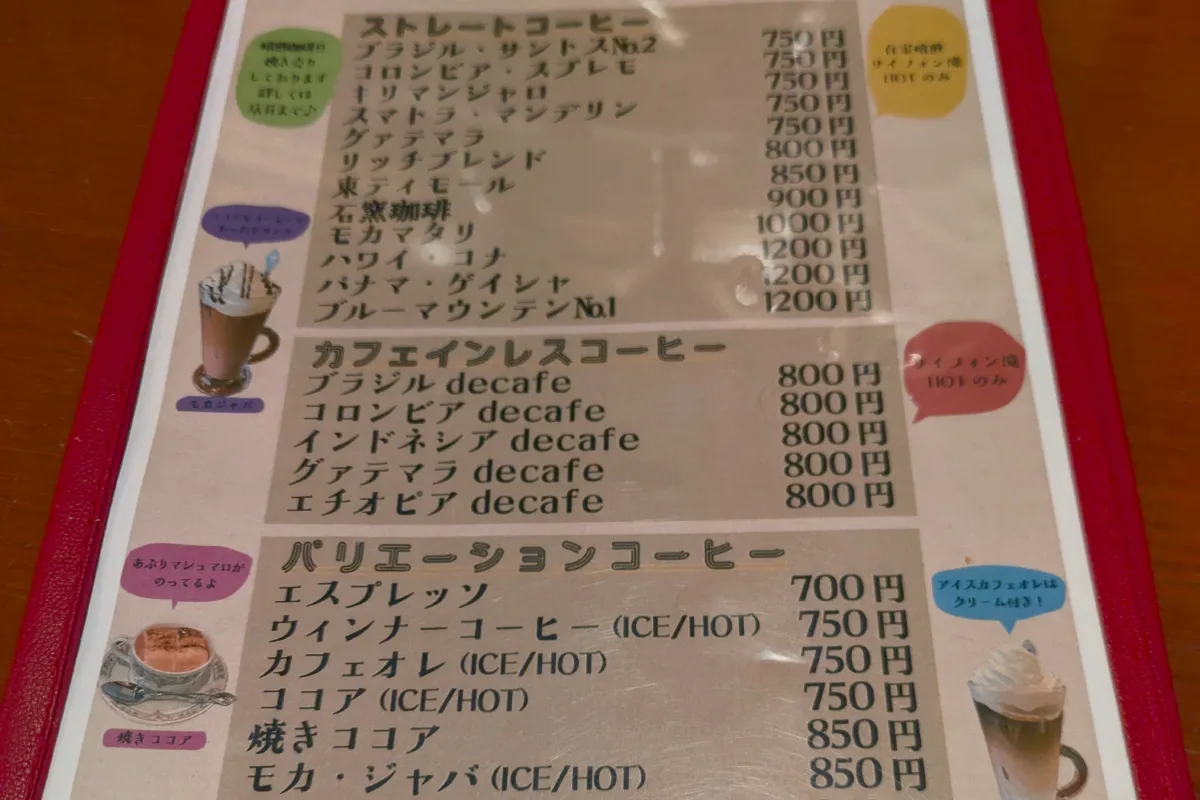 ストレートコーヒー
ブラジル・サントスNo.2 750円
コロンビア・スプレモ 750円
キリマンジャロ 750円
スマトラ・マンデリン 750円
グァテマラ 750円
リッチブレンド 800円
東ティモール 850円
石窯珈琲 900円
モカマタリ 1000円
ハワイ・コナ 1200円
パナマ・ゲイシャ 1200円
ブルーマウンテンNo.1 1200円
焼き売り
しております
詳しくは
自家焙煎
サイフォン淹
HOTのみ
モカジャバ
カフェインレスコーヒー
ブラジル decafe 800円
コロンビア decafe 800円
インドネシア decafe 800円
グァテマラ decafe 800円
エチオピア decafe 800円
サイフォン淹
HOTのみ
バリエーションコーヒー
エスプレッソ 700円
ウィンナーコーヒー (ICE/HOT) 750円
カフェオレ (ICE/HOT) 750円
ココア (ICE/HOT) 750円
焼きココア 850円
モカ・ジャバ (ICE/HOT) 850円
あぶりマシュマロが
のってるよ
焼きココア
アイスカフェオレは
クリーム付き!